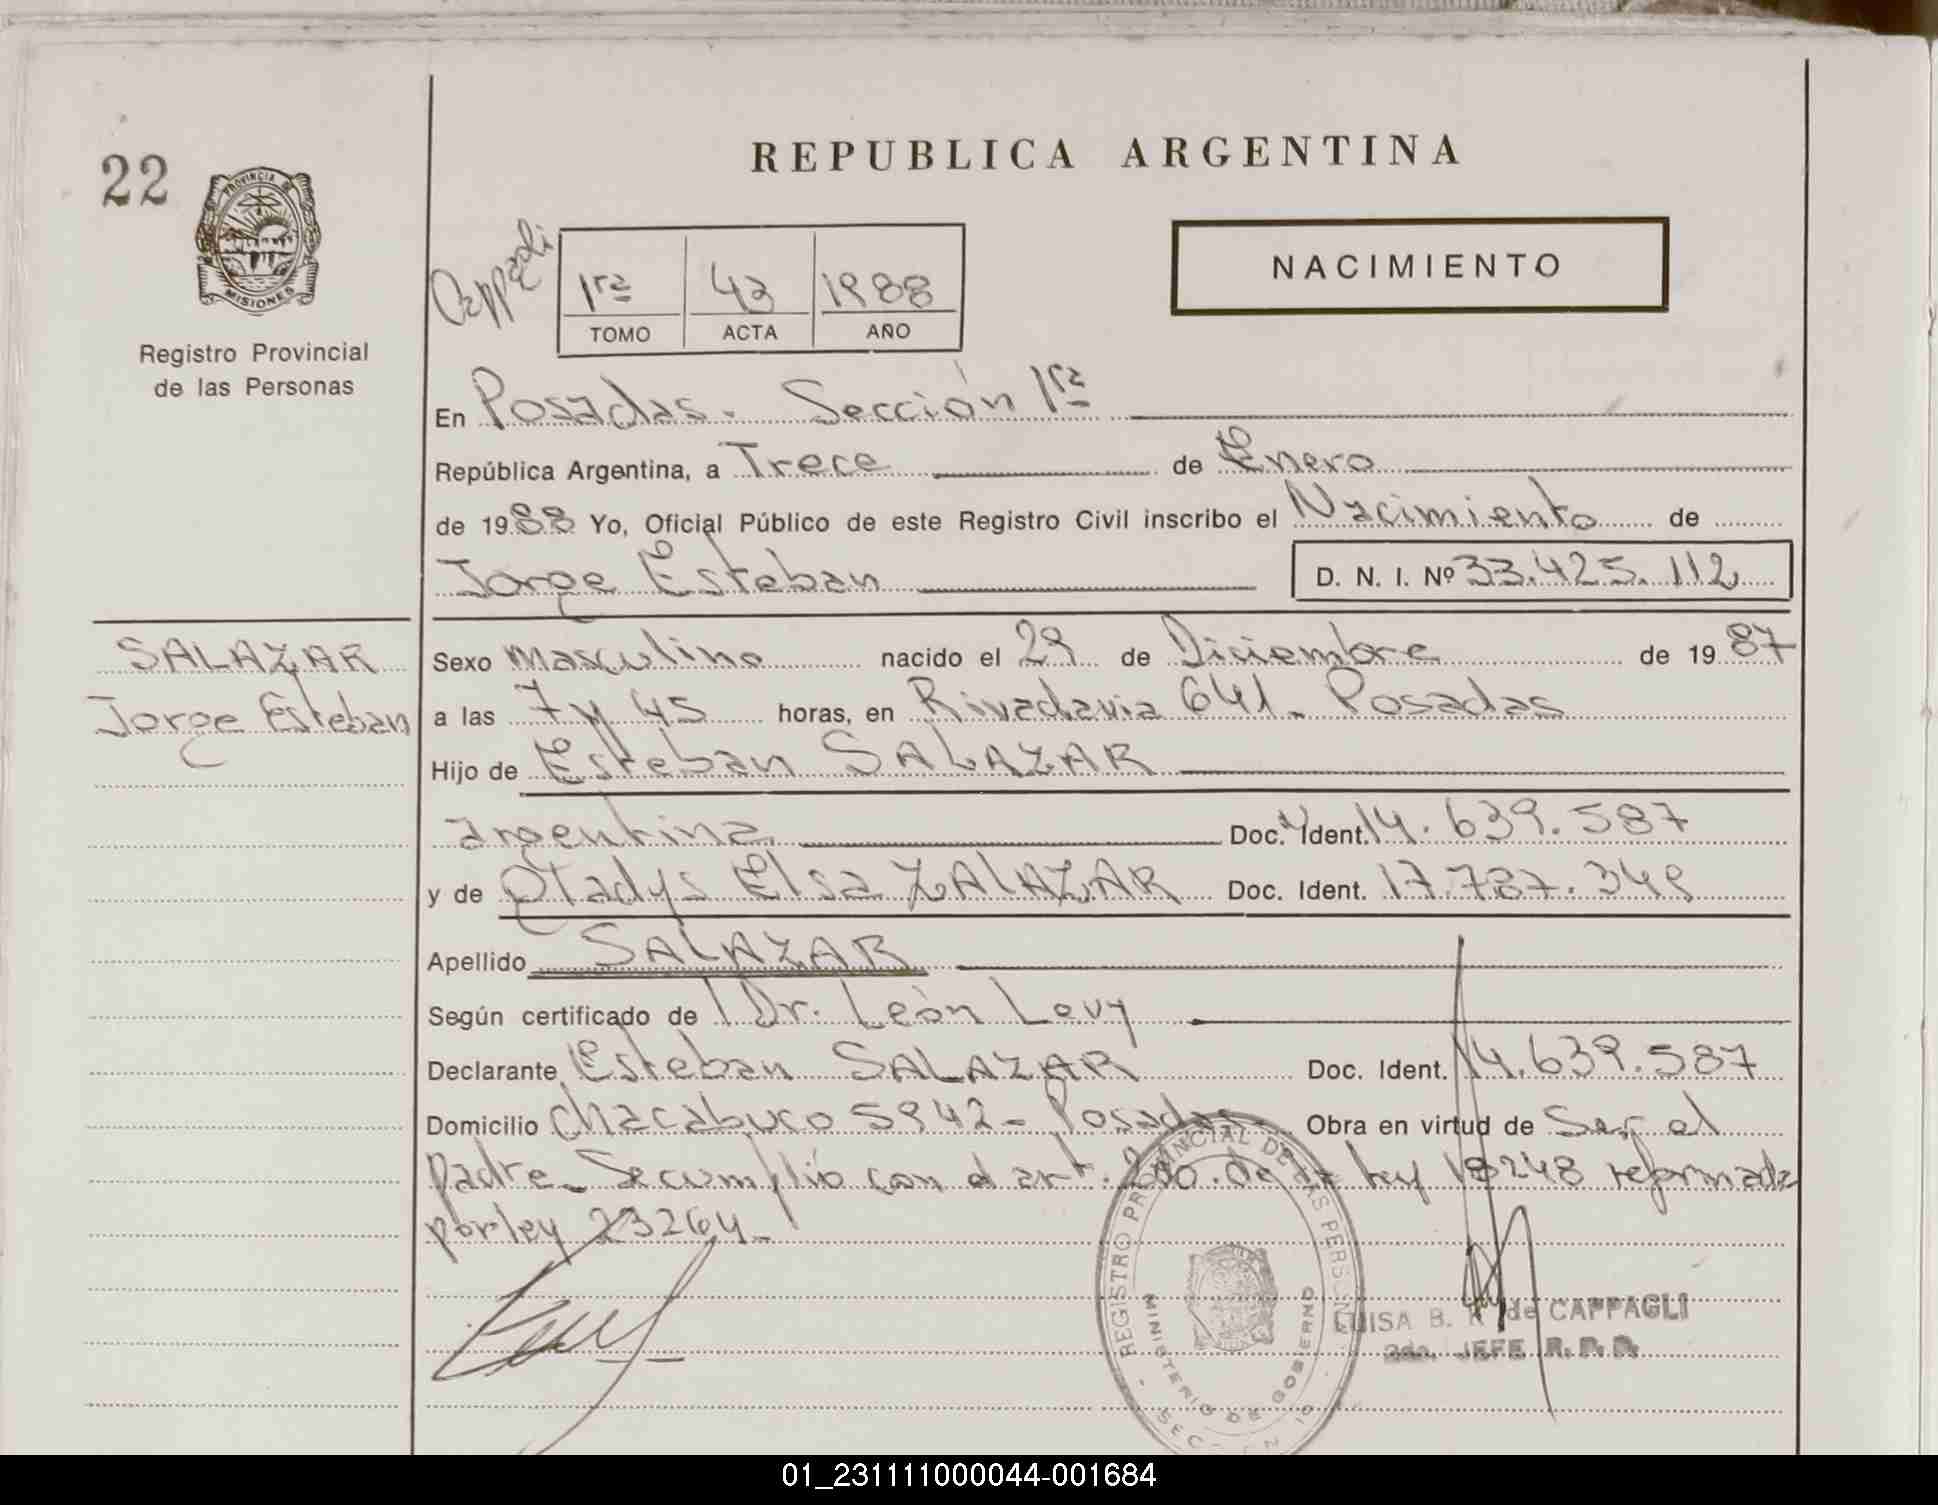 REPUBLICA ARGENTINA
22
PROVINCIA DE
MISIONES
Registro Provincial
de las Personas
Cappagli
1ra 43 1988
TOMO ACTA AÑO
NACIMIENTO
En Posadas. Sección 1ra
República Argentina, a Trece de Enero
de 1988 Yo, Oficial Público de este Registro Civil inscribo el Nacimiento de
Jorge Esteban D. N. I. Nº 33.425.112
SALAZAR
Jorge Esteban
Sexo masculino nacido el 29 de Diciembre de 1987
a las 7 y 45 horas, en Rivadavia 641 - Posadas
Hijo de Esteban SALAZAR
argentina Doc. Ident. 14.639.587
y de Gladys Elsa ZALAZAR Doc. Ident. 17.787.349
Apellido SALAZAR
Según certificado de Dr. León Levy
Declarante Esteban SALAZAR Doc. Ident. 14.639.587
Domicilio Chacabuco 5942 - Posadas Obra en virtud de Ser el
padre - Se cumplió con el art. 2do. de la ley 18248 reformada
por ley 23264 -
REGISTRO PROVINCIAL DE LAS PERSONAS
MINISTERIO DE GOBIERNO
SECCION
LUISA B. de CAPPAGLI
2do. JEFE R. P. P.
01_231111000044-001684